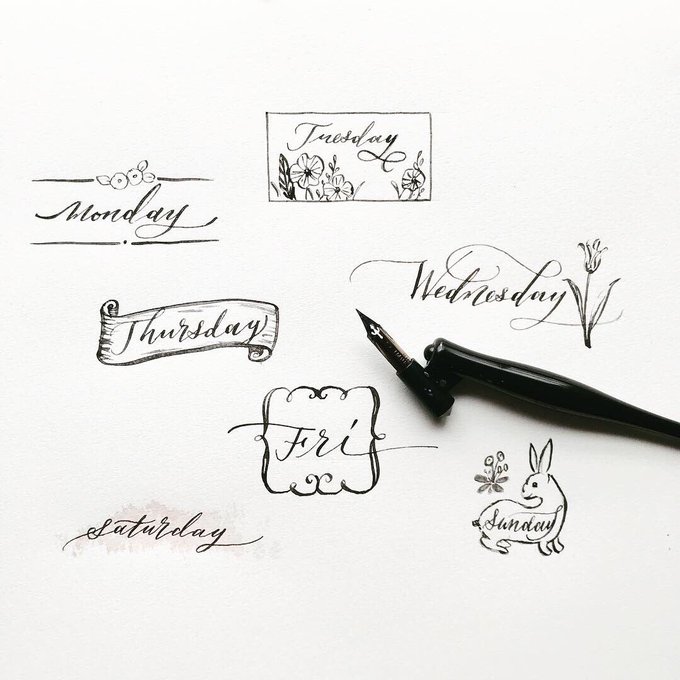 Tuesday
Monday
Wednesday
Thursday
Fri
saturday
Sunday